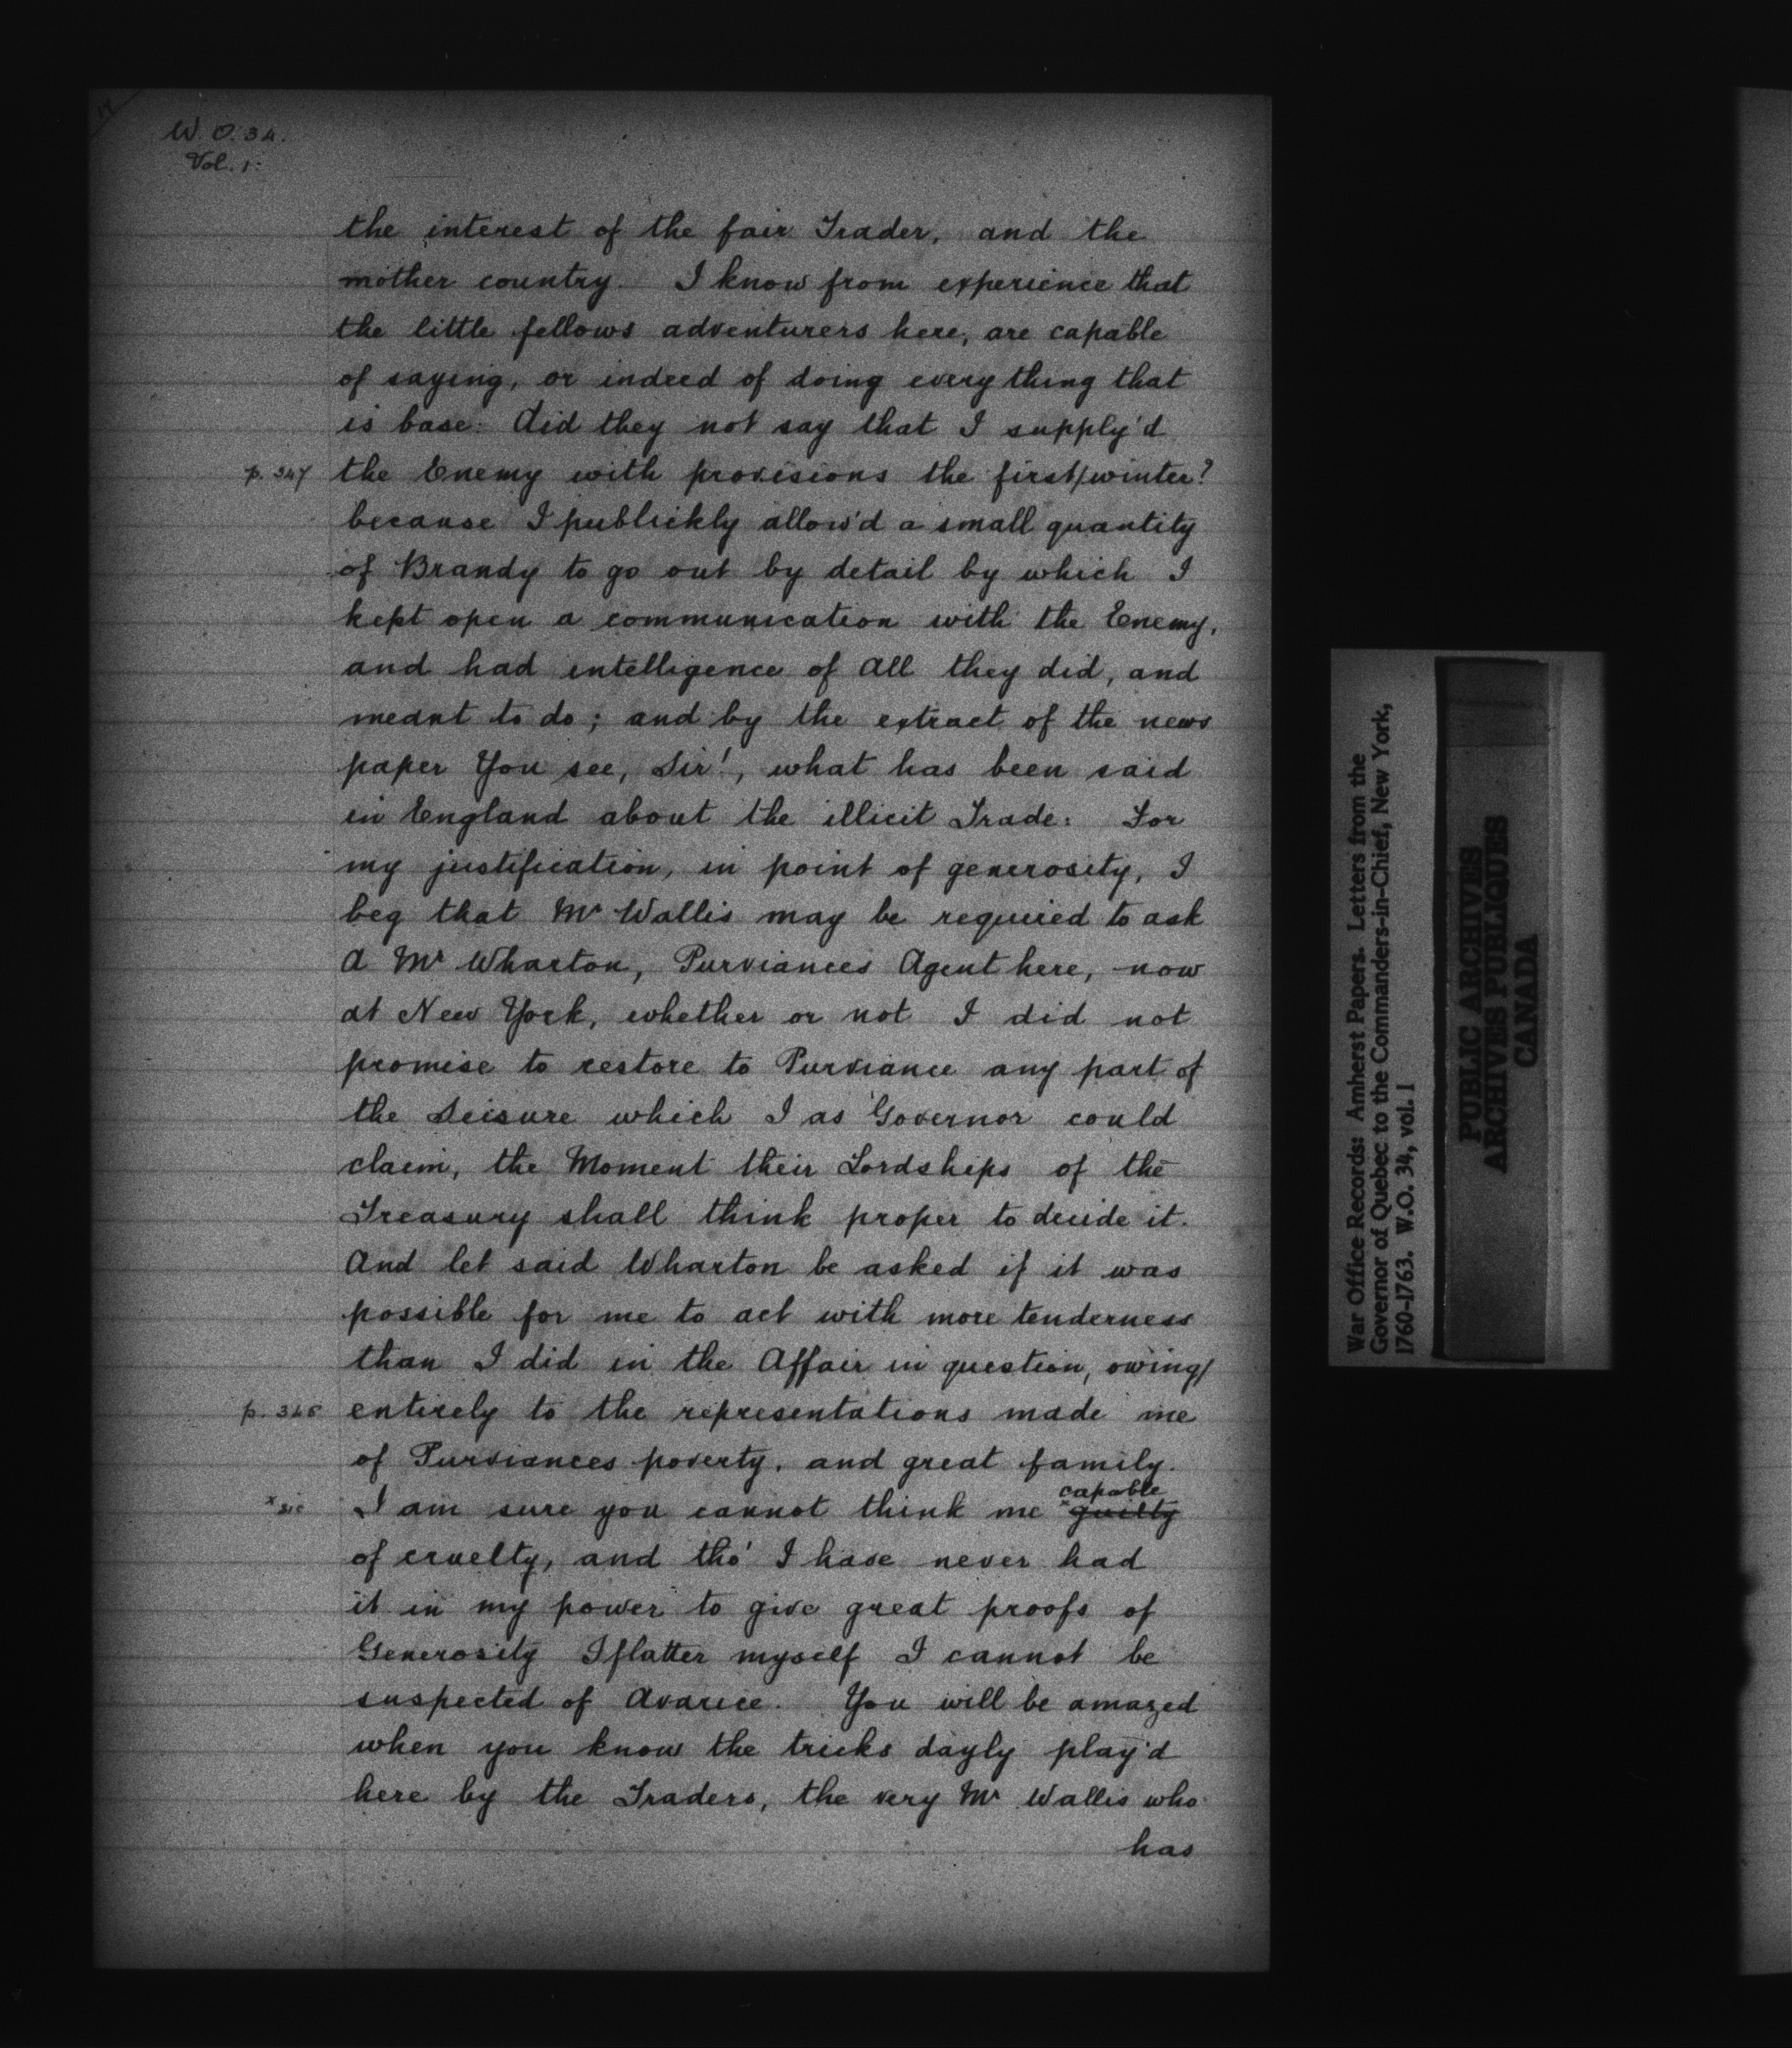 W. O. 34.
Vol. 1.
the interest of the fair Trader, and the
mother country. I know from experience that
the little fellows adventurers here, are capable
of saying, or indeed of doing every thing that
is base: did they not say that I supply'd
p. 347 the Enemy with provisions the first/winter?
because I publickly allow'd a small quantity
of Brandy to go out by detail by which I
kept open a communication with the Enemy,
and had intelligence of all they did, and
meant to do; and by the extract of the news
paper You see, Sir!, what has been said
in England about the illicit Trade: For
my justification, in point of generosity, I
beg that Mr Wallis may be required to ask
a Mr Wharton, Purviances Agent here, now
at New York, whether or not I did not
promise to restore to Purviance any part of
the Seisure which I as Governor could
claim, the Moment their Lordships of the
Treasury shall think proper to decide it.
And let said Wharton be asked if it was
possible for me to act with more tenderness
than I did in the Affair in question, owing/
p. 348 entirely to the representations made me
of Purviances poverty, and great family.
capable
x sic I am sure you cannot think me x guilty
of cruelty, and tho' I have never had
it in my power to give great proofs of
Generosity I flatter myself I cannot be
suspected of Avarice. You will be amazed
when you know the tricks dayly play'd
here by the Traders, the very Mr Wallis who
has
War Office Records: Amherst Papers. Letters from the
Governor of Quebec to the Commanders-in-Chief, New York,
1760-1763. W.O. 34, vol. 1
PUBLIC ARCHIVES
ARCHIVES PUBLIQUES
CANADA